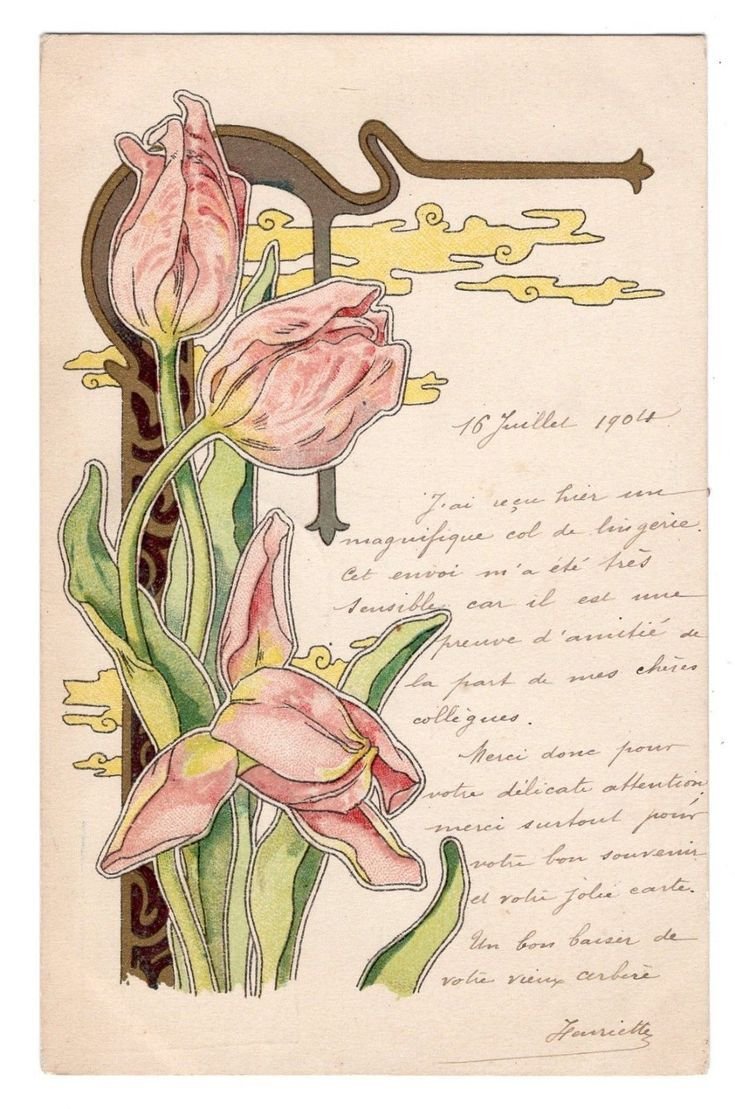 16 Juillet 1904
J'ai reçu hier un
magnifique col de lingerie.
Cet envoi m'a été très
sensible, car il est une
preuve d'amitié de
la part de mes chères
collègues.
Merci donc pour
votre délicate attention,
merci surtout pour
votre bon souvenir
et votre jolie carte.
Un bon baiser de
votre vieux cerbère
Henriette